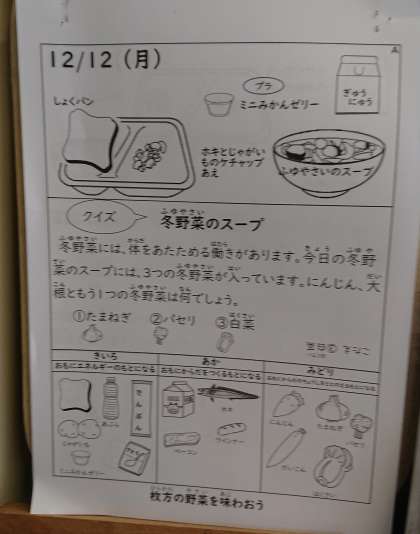 A
12/12（月）
プラ
ぎゅう
にゅう
しょくパン
ミニみかんゼリー
ホキとじゃがい
ものケチャップ
あえ
ふゆやさいのスープ
クイズ
冬野菜のスープ
冬野菜には、体をあたためる働きがあります。今日の冬野
菜のスープには、3つの冬野菜が入っています。にんじん、大
根ともう1つの冬野菜は何でしょう。
①たまねぎ　②パセリ　③白菜
きいろ
あか
みどり
おもにエネルギーのもとになる
おもにからだをつくるもとになる
でんぷん
あぶら
じゃがいも
ミニみかんゼリー
ホキ
ベーコン
ウインナー
にんじん
たまねぎ
パセリ
だいこん
はくさい
枚方の野菜を味わおう